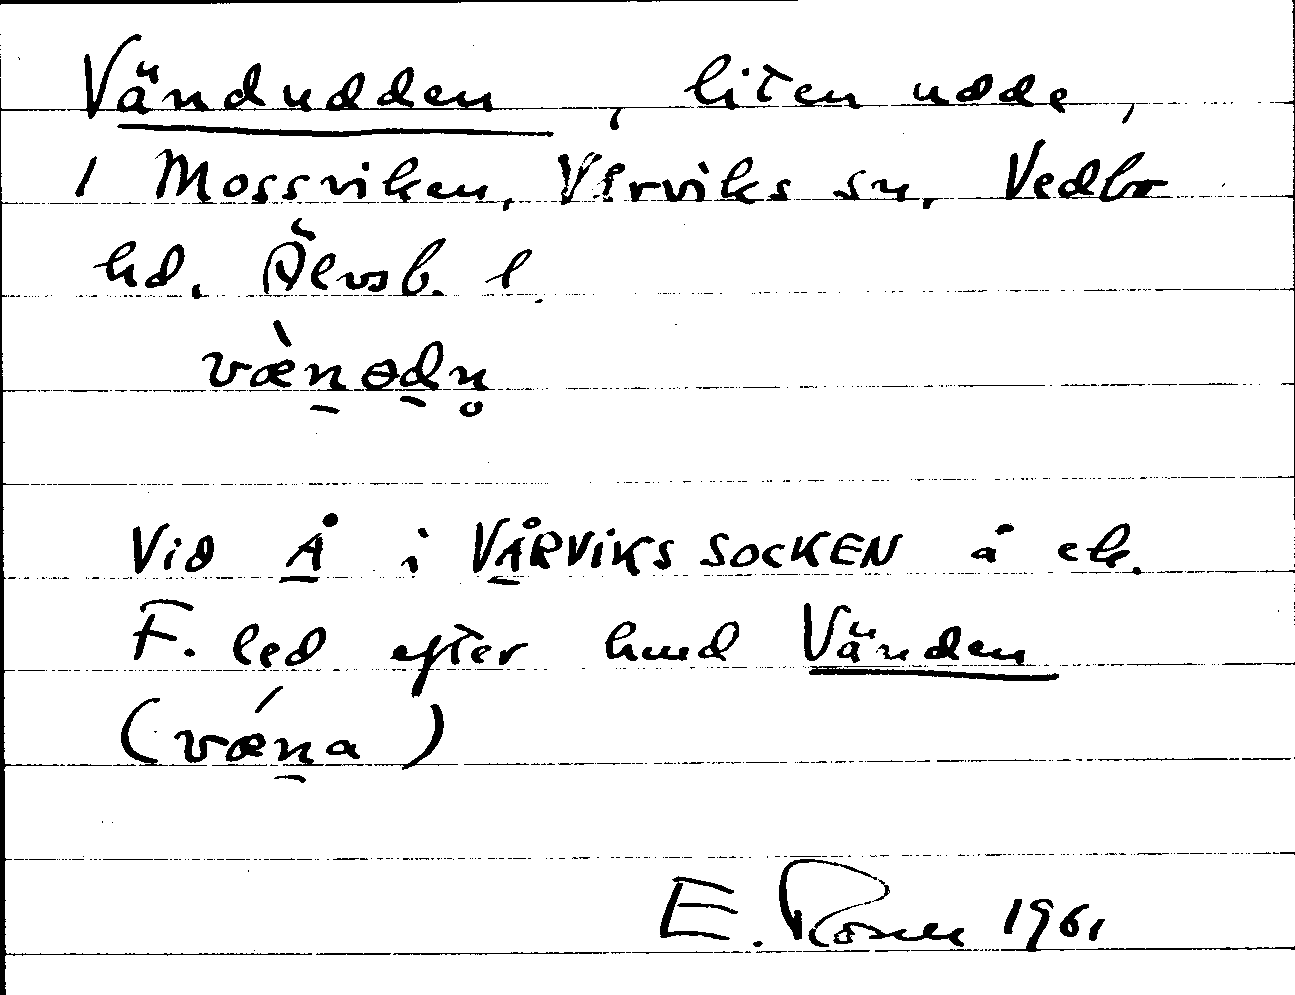 Vändudden, liten udde,
i Mossviken, Vårviks sn, Vedbo
hd. Älvsb. l.
væ̀n̠ɵd̠n̥
Vid Å i VÅRVIKS SOCKEN å ek.
F. led efter hmd Vänden
(vǽn̠a)
E. Rosell 1961